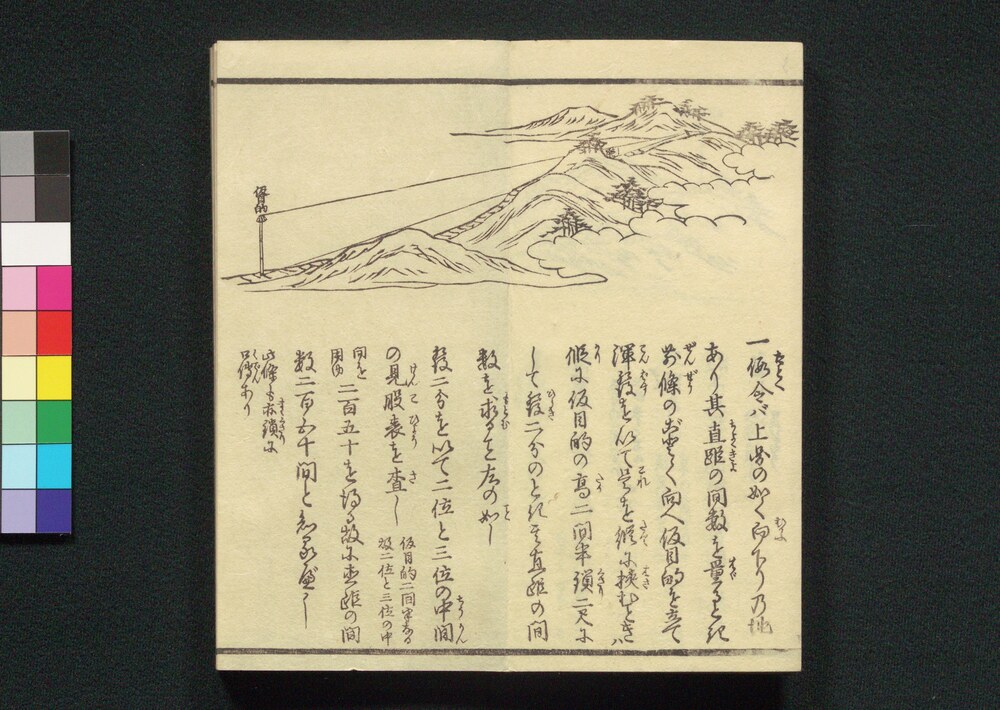 仮目的
一仮令バ上図の如く向下りの地
あり其直距の間数を量るとき
前條のごとく向へ仮目的を立て
渾發を以て是を縦に挟むとき
仮目的の高二間半
して發二分のとき直距の間
数を求ること左の如し
發二分を以て二位と三位の中間
の見股表を査し
仮目的二間半なる
故二位と三位の中
間を
用ゆ
二百五十を得る故に直距の間
数二百五十間と知るべし
此條も亦鎖に
口傳あり